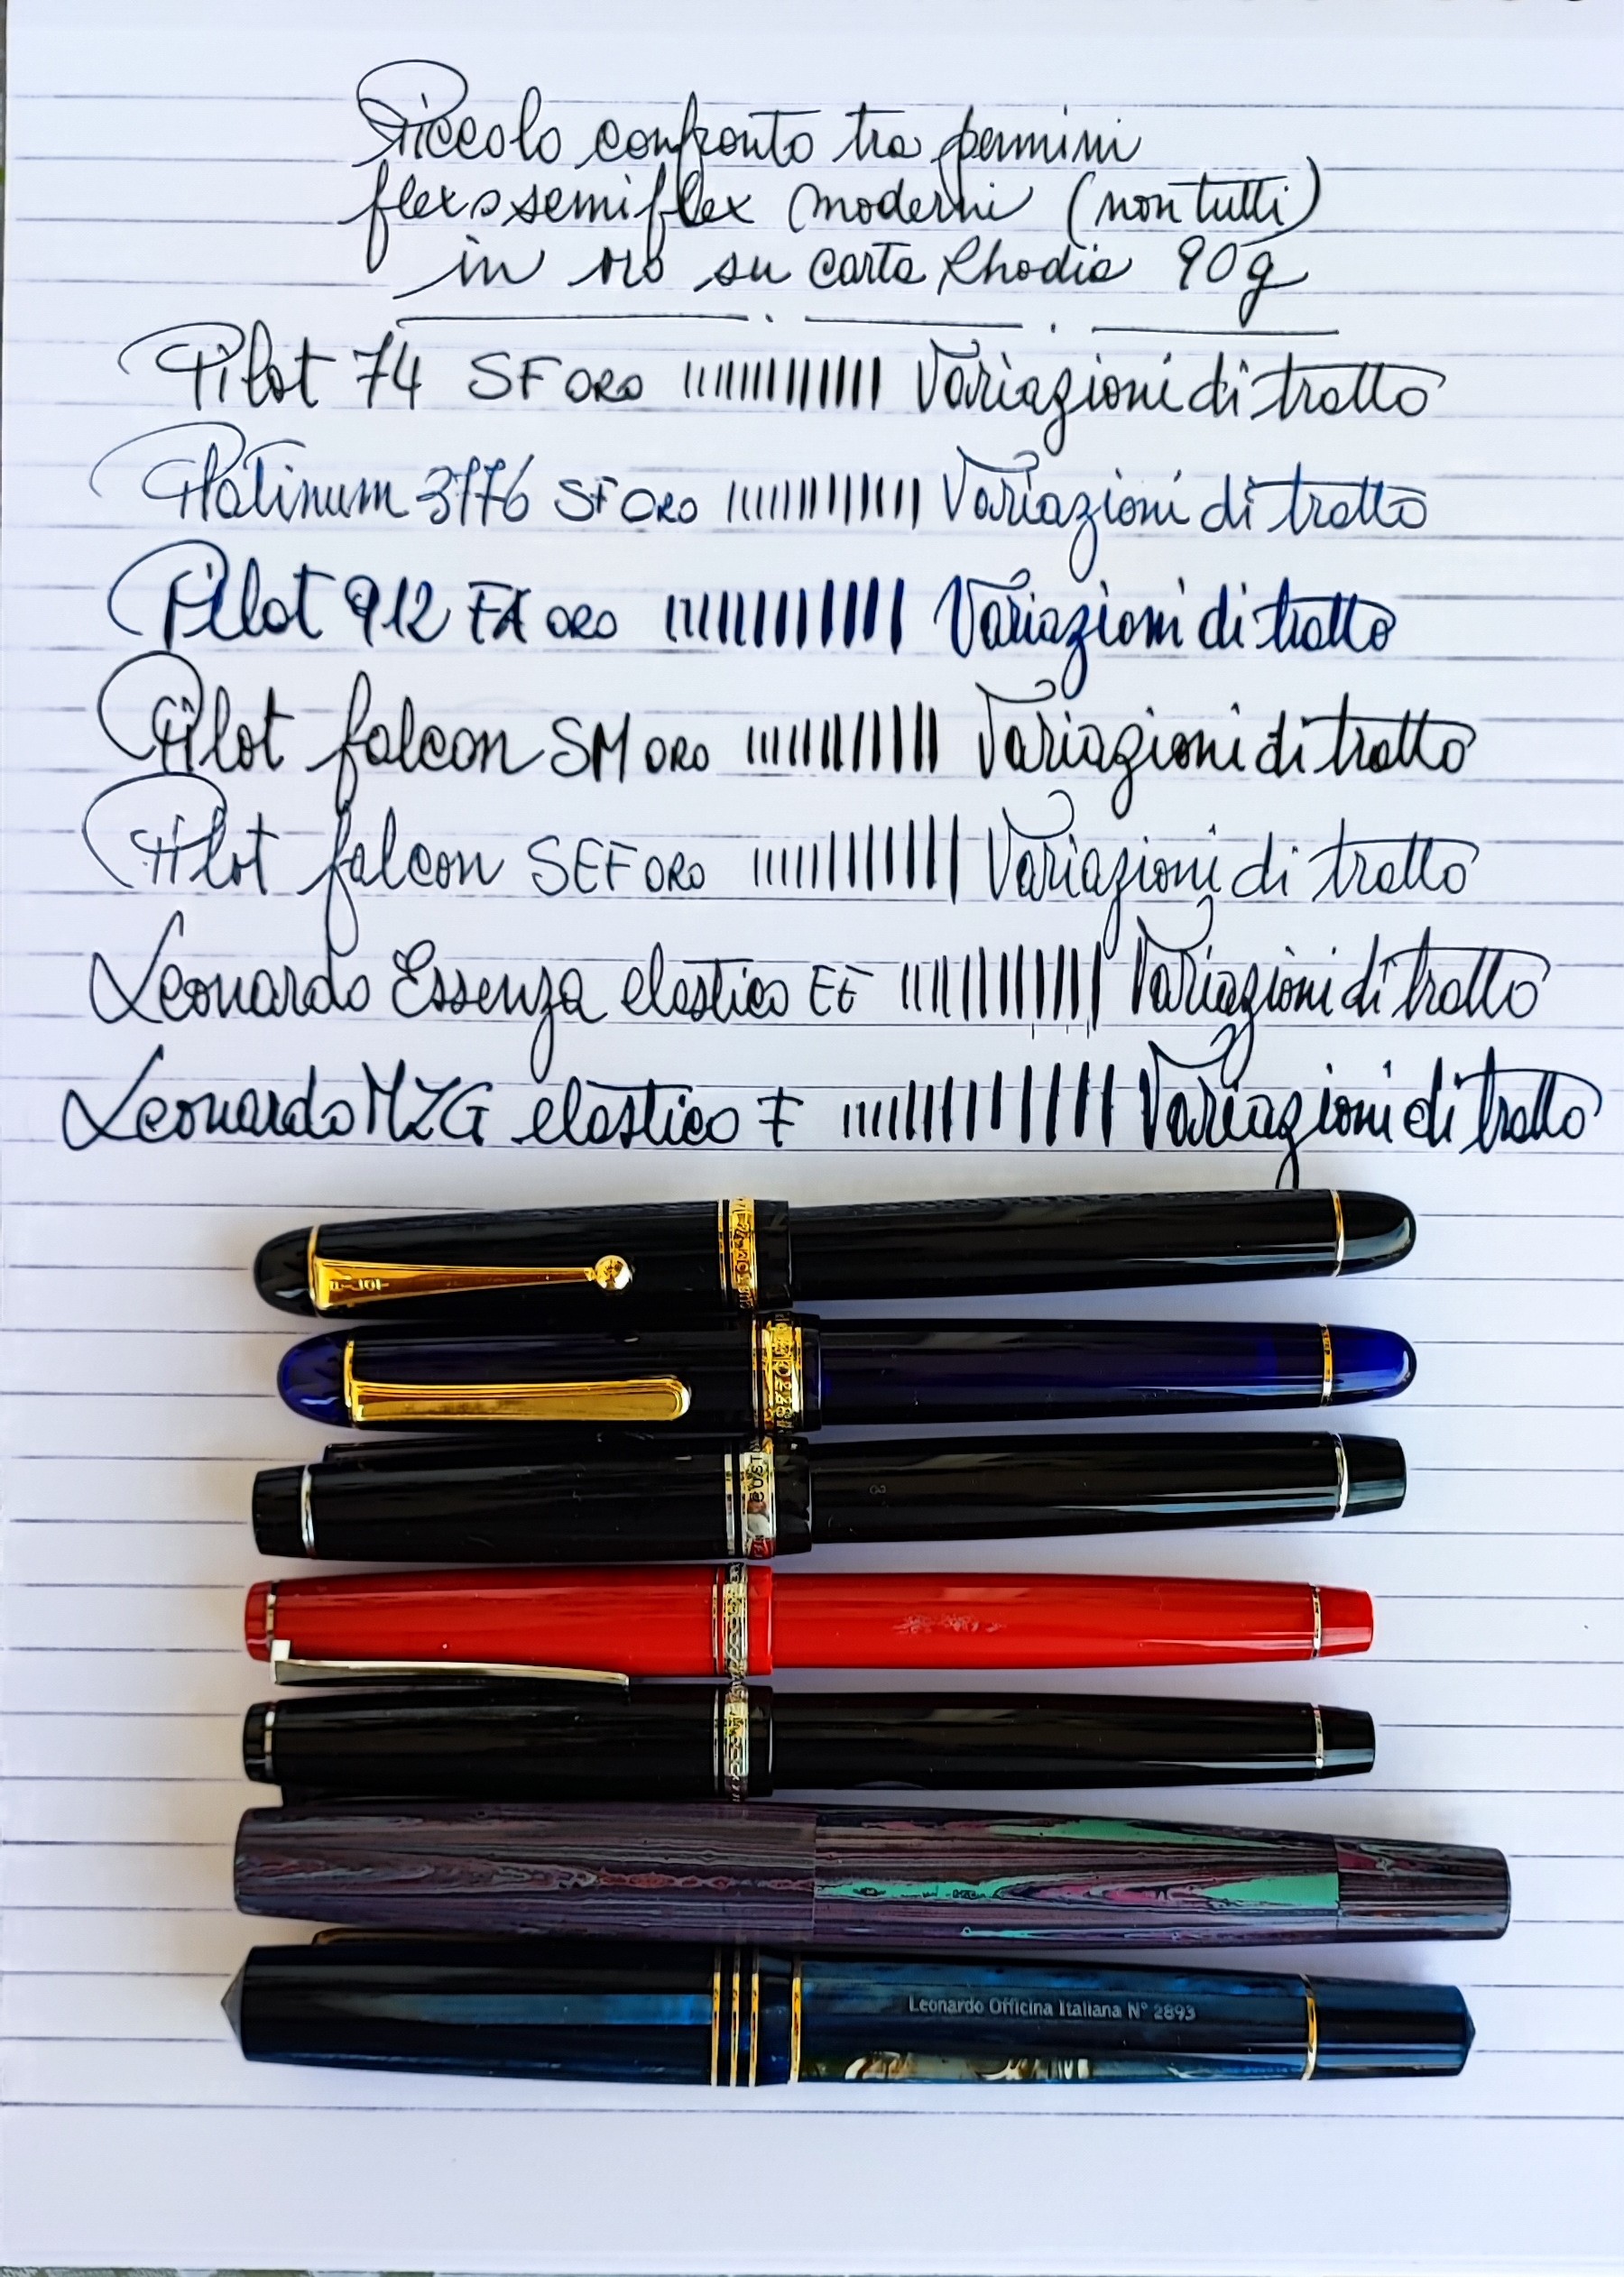 Piccolo confronto tra pennini
flex o semiflex moderni (non tutti)
in oro su carta Rhodia 90g
Pilot 74 SF ORO Variazioni di tratto
Platinum 3776 SF ORO Variazioni di tratto
Pilot 912 FA ORO Variazioni di tratto
Pilot falcon SM ORO Variazioni di tratto
Pilot falcon SEF ORO Variazioni di tratto
Leonardo Essenza elastico EF Variazioni di tratto
Leonardo MZG elastico F Variazioni di tratto
PILOT
Leonardo Officina Italiana N° 2893